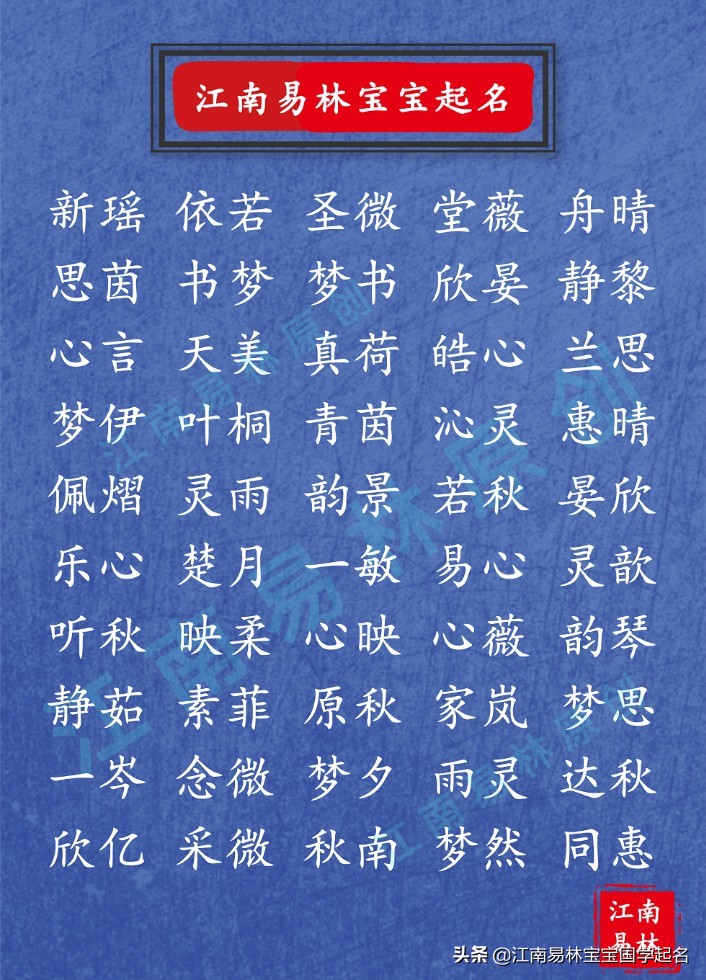 江南易林宝宝起名
新瑶 依若 圣微 堂薇 舟晴
思茵 书梦 梦书 欣晏 静黎
心言 天美 真荷 皓心 兰思
梦伊 叶桐 青茵 沁灵 惠晴
佩熠 灵雨 韵景 若秋 晏欣
乐心 楚月 一敏 易心 灵歆
听秋 映柔 心映 心薇 韵琴
静茹 素菲 原秋 家岚 梦思
一岑 念微 梦夕 雨灵 达秋
欣亿 采微 秋南 梦然 同惠
江南易林原创
江南易林原创
江南易林原创
江南
易林
头条 @江南易林宝宝国学起名